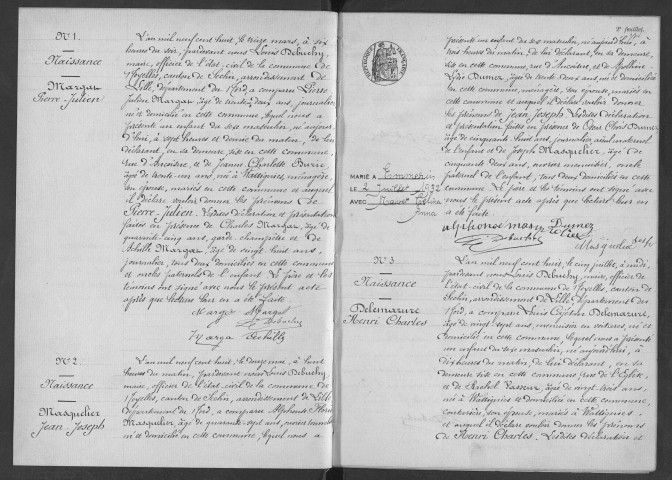 N° 1.
Naissance
Margar
Pierre-Julien
L'an mil neuf cent huit, le treize mars, à six
heures du soir, pardevant nous Louis Debuchy,
maire, officier de l'état civil de la commune de
Noyelles, canton de Seclin, arrondissement de
Lille, département du Nord, a comparu Pierre
Julien Margar, âgé de trente-deux ans, journalier
né et domicilié en cette commune, lequel nous a
présenté un enfant du sexe masculin, né aujour-
d'hui, à sept heures et demie du matin, de lui
déclarant, en sa demeure, sise en cette commune,
rue d'Ancoisne, et de Jeanne Charlotte
âgée de trente-un ans, née à Wattignies, ménagère,
son épouse, mariés en cette commune et auquel
il déclare vouloir donner les prénoms de
Pierre-Julien. Lesdites déclaration et présentation
faites en présence de Charles Margar, âgé de
quarante cinq ans, garde champêtre et de
Achille Margar, âgé de vingt huit ans,
journalier, tous deux domiciliés en cette commune
et oncles paternels de l'enfant. Le père et les
témoins ont signé avec nous le présent acte
après que lecture leur en a été faite.
Margar Margar
Debuchy
Marga Achille
N° 2
Naissance
Masquelier
Jean-Joseph
L'an mil neuf cent huit, le douze mai, à huit
heures du matin, pardevant nous Louis Debuchy,
maire, officier de l'état civil de la commune de
Noyelles, canton de Seclin, arrondissement de Lille
département du Nord, a comparu Alphonse
Masquelier, âgé de quarante-sept ans, ouvrier
né et domicilié en cette commune, lequel nous a
2e feuillet
RÉPUBLIQUE FRANÇAISE
présenté un enfant du sexe masculin, né aujourd'hui, à
trois heures du matin, de lui déclarant, en sa demeure,
sise en cette commune, rue d'Ancoisne, et de Apolline
Dumez, âgée de trente deux ans, née et domiciliée
en cette commune, ménagère, son épouse, mariés en
cette commune et auquel il déclare vouloir donner
les prénoms de Jean Joseph. Lesdites déclaration
et présentation faites en présence de Clovis Dumez
âgé de cinquante huit ans, journalier, aïeul maternel
de l'enfant et de Joseph Masquelier, âgé de
cinquante deux ans, ouvrier, oncle
paternel de l'enfant, tous deux domiciliés en cette
commune. Le père et les témoins ont signé avec
nous le présent acte après que lecture leur en
a été faite.
MARIÉ A Emmerin
LE 2 juillet 1932
AVEC
Anna
alphonse masquelier Dumez
Debuchy Masquelier Joseph
N° 3
Naissance
Delemazure
Henri Charles
L'an mil neuf cent huit, le cinq juillet, à midi,
pardevant nous Louis Debuchy, maire, officier de
l'état civil de la commune de Noyelles, canton de
Seclin, arrondissement de Lille, département du
Nord, a comparu Louis Delemazure,
âgé de vingt sept ans, menuisier en voitures, né et
domicilié en cette commune, lequel nous a présenté
un enfant du sexe masculin, né aujourd'hui, à
dix heures du matin, de lui déclarant, en sa
demeure sise en cette commune, rue de l'Eglise,
et de Rachel Vasseur, âgée de vingt trois ans,
née à Wattignies et domiciliée en cette commune,
couturière, son épouse, mariés à Wattignies
et auquel il déclare vouloir donner les prénoms
de Henri Charles. Lesdites déclaration et